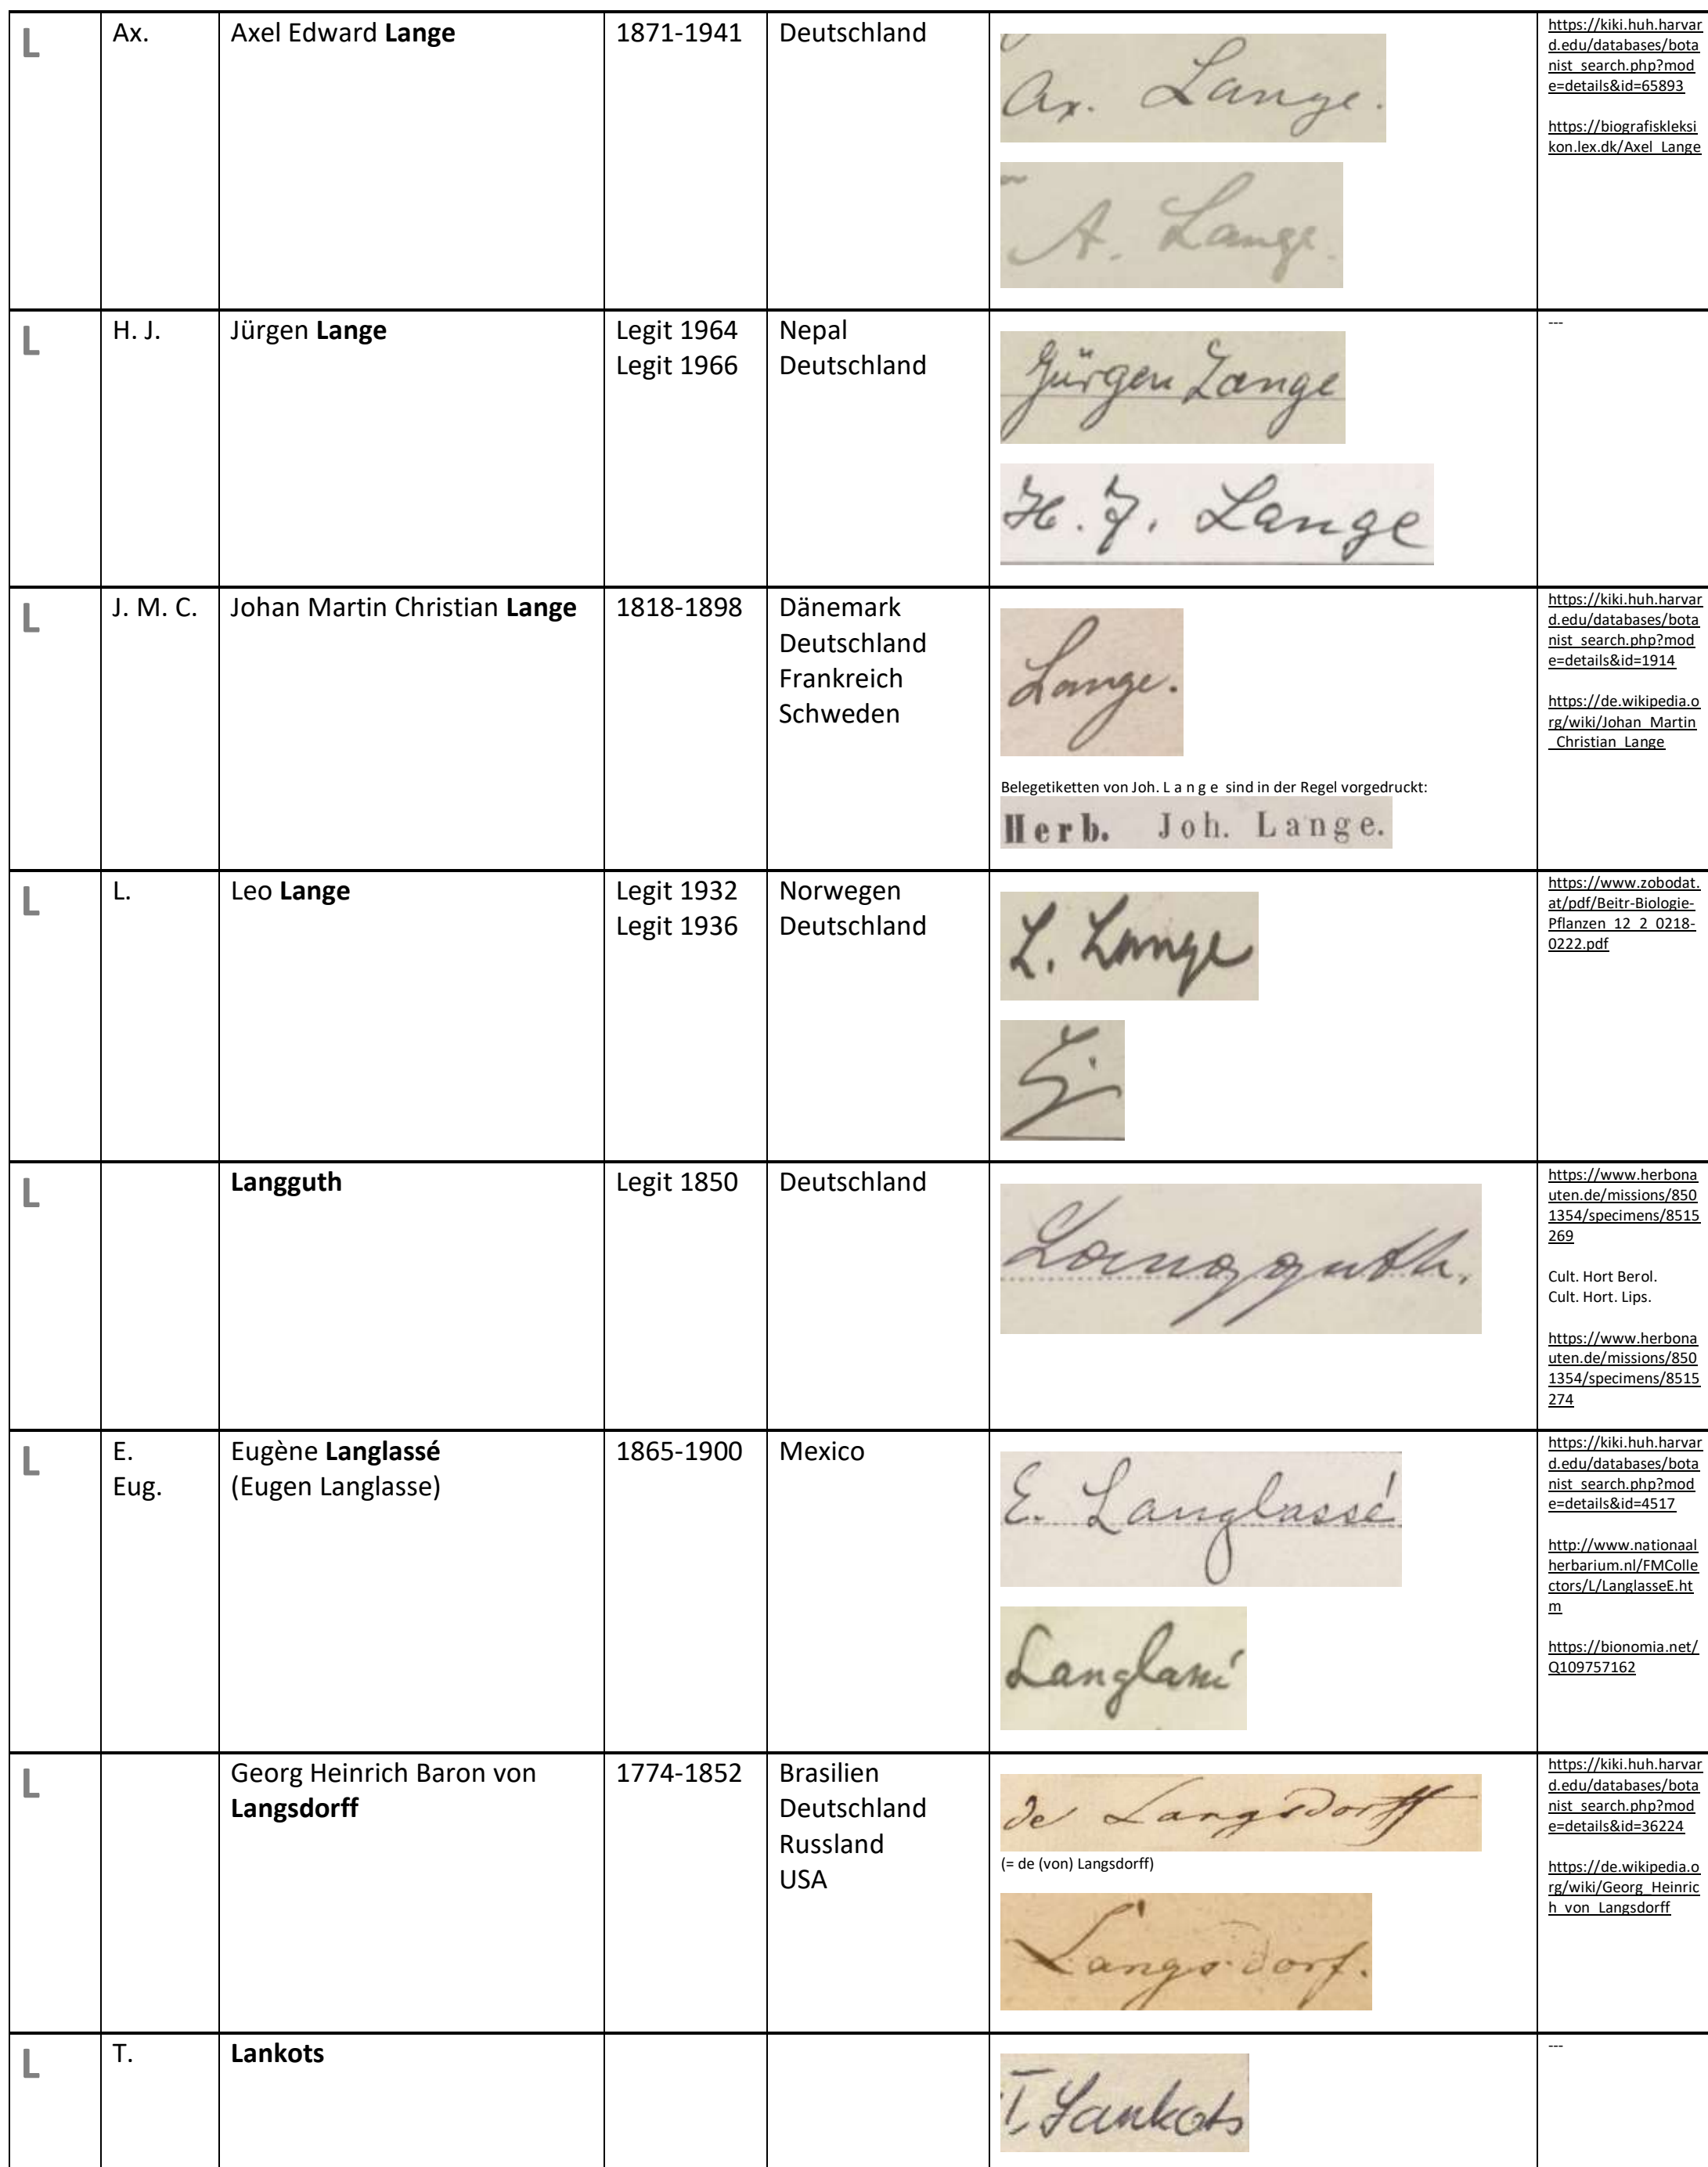 L
Ax.
Axel Edward Lange
1871-1941
Deutschland
Ax. Lange.
A. Lange.
https://kiki.huh.harvar
d.edu/databases/bota
nist_search.php?mod
e=details&id=65893
https://biografiskleksi
kon.lex.dk/Axel_Lange
L
H. J.
Jürgen Lange
Legit 1964
Legit 1966
Nepal
Deutschland
Jürgen Lange
H. J. Lange
---
L
J. M. C.
Johan Martin Christian Lange
1818-1898
Dänemark
Deutschland
Frankreich
Schweden
Lange.
Belegetiketten von Joh. L a n g e sind in der Regel vorgedruckt:
Herb. Joh. Lange.
https://kiki.huh.harvar
d.edu/databases/bota
nist_search.php?mod
e=details&id=1914
https://de.wikipedia.o
rg/wiki/Johan_Martin
_Christian_Lange
L
L.
Leo Lange
Legit 1932
Legit 1936
Norwegen
Deutschland
L. Lange
https://www.zobodat.
at/pdf/Beitr-Biologie-
Pflanzen_12_2_0218-
0222.pdf
L
Langguth
Legit 1850
Deutschland
Langguth.
https://www.herbona
uten.de/missions/850
1354/specimens/8515
269
Cult. Hort Berol.
Cult. Hort. Lips.
https://www.herbona
uten.de/missions/850
1354/specimens/8515
274
L
E.
Eug.
Eugène Langlassé
(Eugen Langlasse)
1865-1900
Mexico
E. Langlassé
Langlassé
https://kiki.huh.harvar
d.edu/databases/bota
nist_search.php?mod
e=details&id=4517
http://www.nationaal
herbarium.nl/FMColle
ctors/L/LanglasseE.ht
m
https://bionomia.net/
Q109757162
L
Georg Heinrich Baron von
Langsdorff
1774-1852
Brasilien
Deutschland
Russland
USA
de Langsdorff
(= de (von) Langsdorff)
Langsdorf.
https://kiki.huh.harvar
d.edu/databases/bota
nist_search.php?mod
e=details&id=36224
https://de.wikipedia.o
rg/wiki/Georg_Heinric
h_von_Langsdorff
L
T.
Lankots
T. Lankots
---